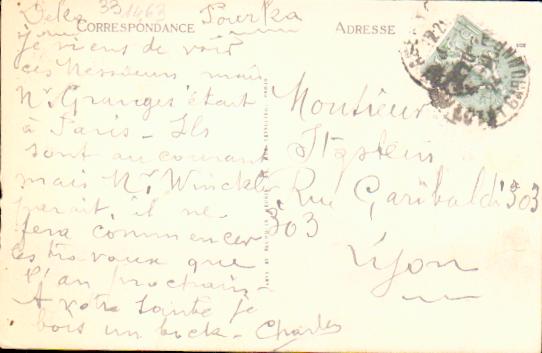 33 1463
CORRESPONDANCE
ADRESSE
je viens de voir
ces Messieurs mais
Mr Granges était
à Paris - Ils
sont au courant
mais Mr Winckle
parait, il ne
fera commencer
les travaux que
l'an prochain -
A votre santé je
bois un bock - Charles
Monsieur
Rue Garibaldi 303
303
Lyon